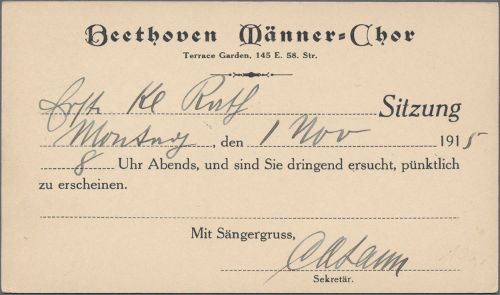 Beethoven Männer-Chor
Terrace Garden, 145 E. 58. Str.
Sitzung
Montag, den 1 Nov 1915
8 Uhr Abends, und sind Sie dringend ersucht, pünktlich
zu erscheinen.
Mit Sängergruss,
Sekretär.